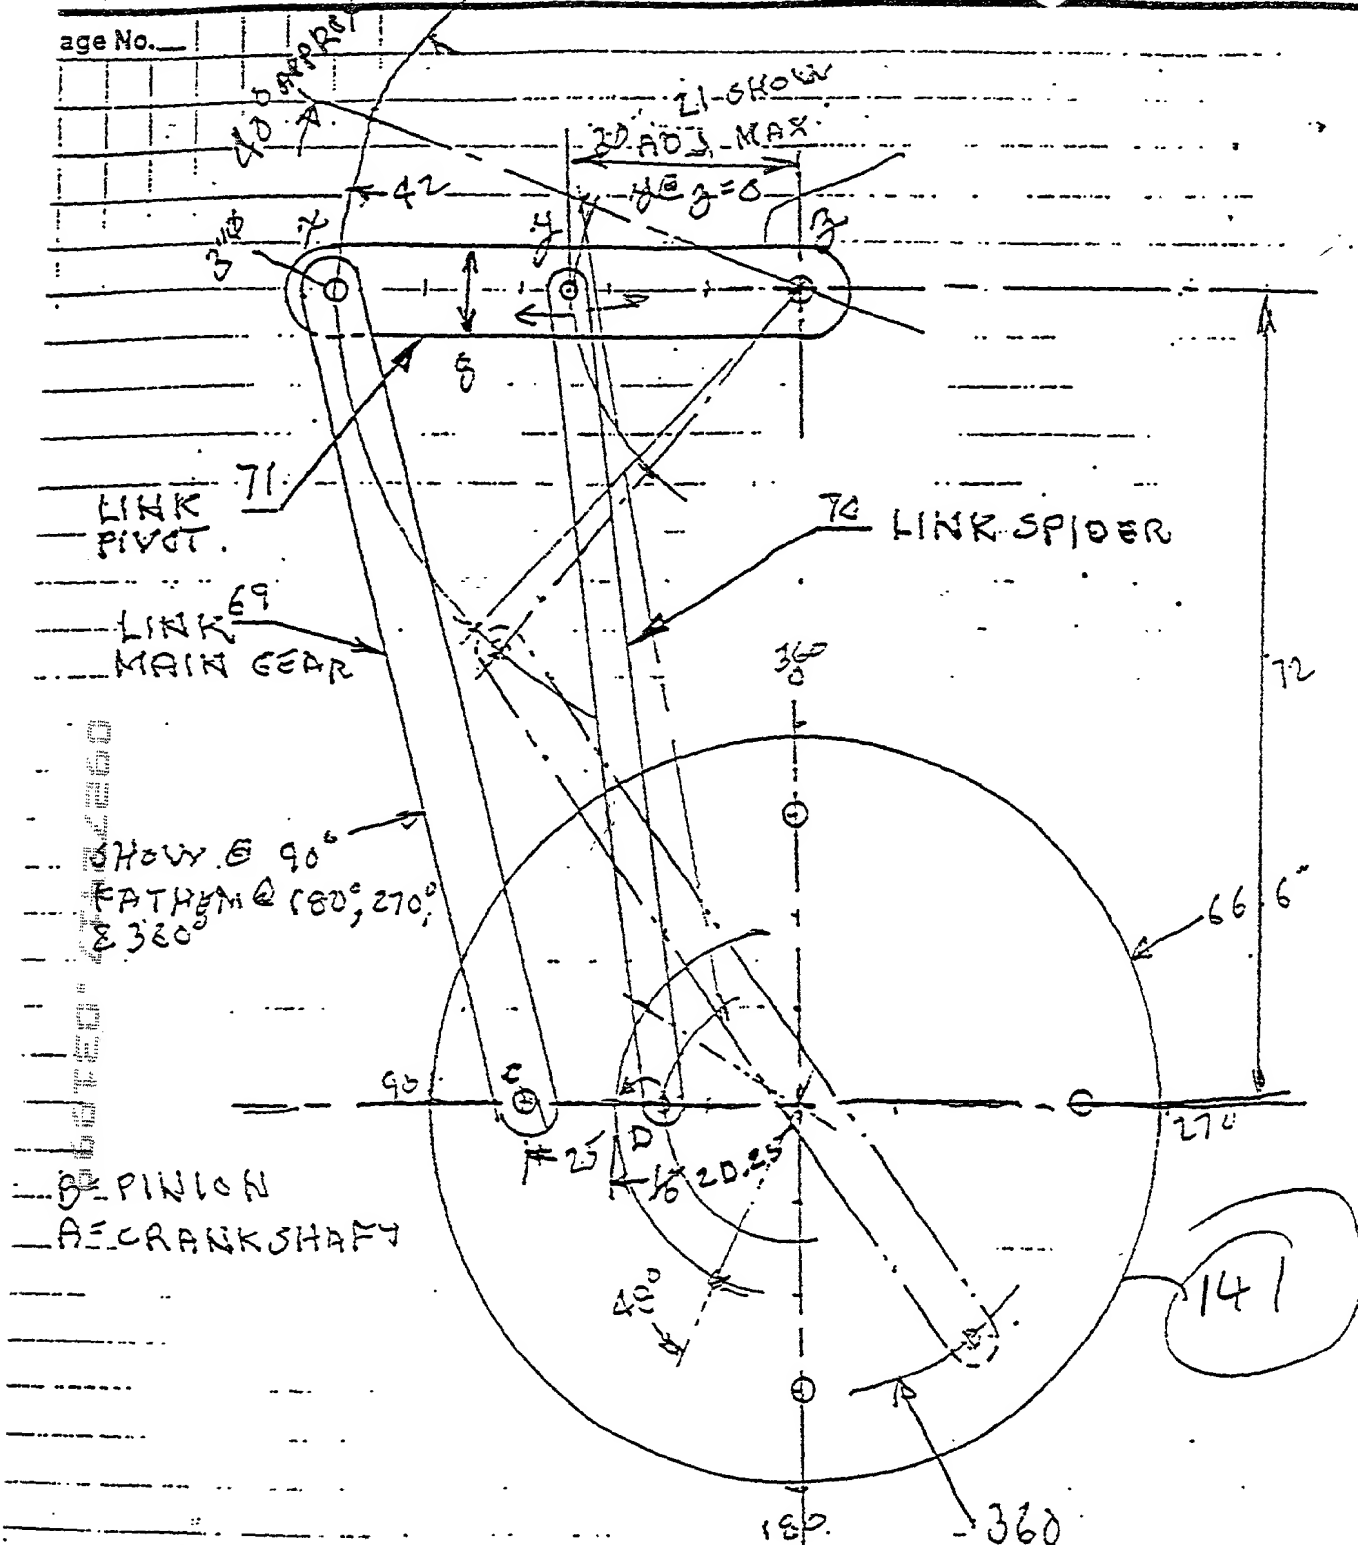 age No.
40° APPROX
21 SHOW
20" ADJ. MAX.
y @ z = 0
42
3"ϕ
x
y
z
8
71
LINK
PIVOT.
70 LINK SPIDER
69
LINK
MAIN GEAR
360
0
72
SHOW @ 90°
FATHEM @ 180°, 270°,
& 360°
66.6"
90
C
D
25
20.25
270
B = PINION
A = CRANKSHAFT
48°
141
180
360